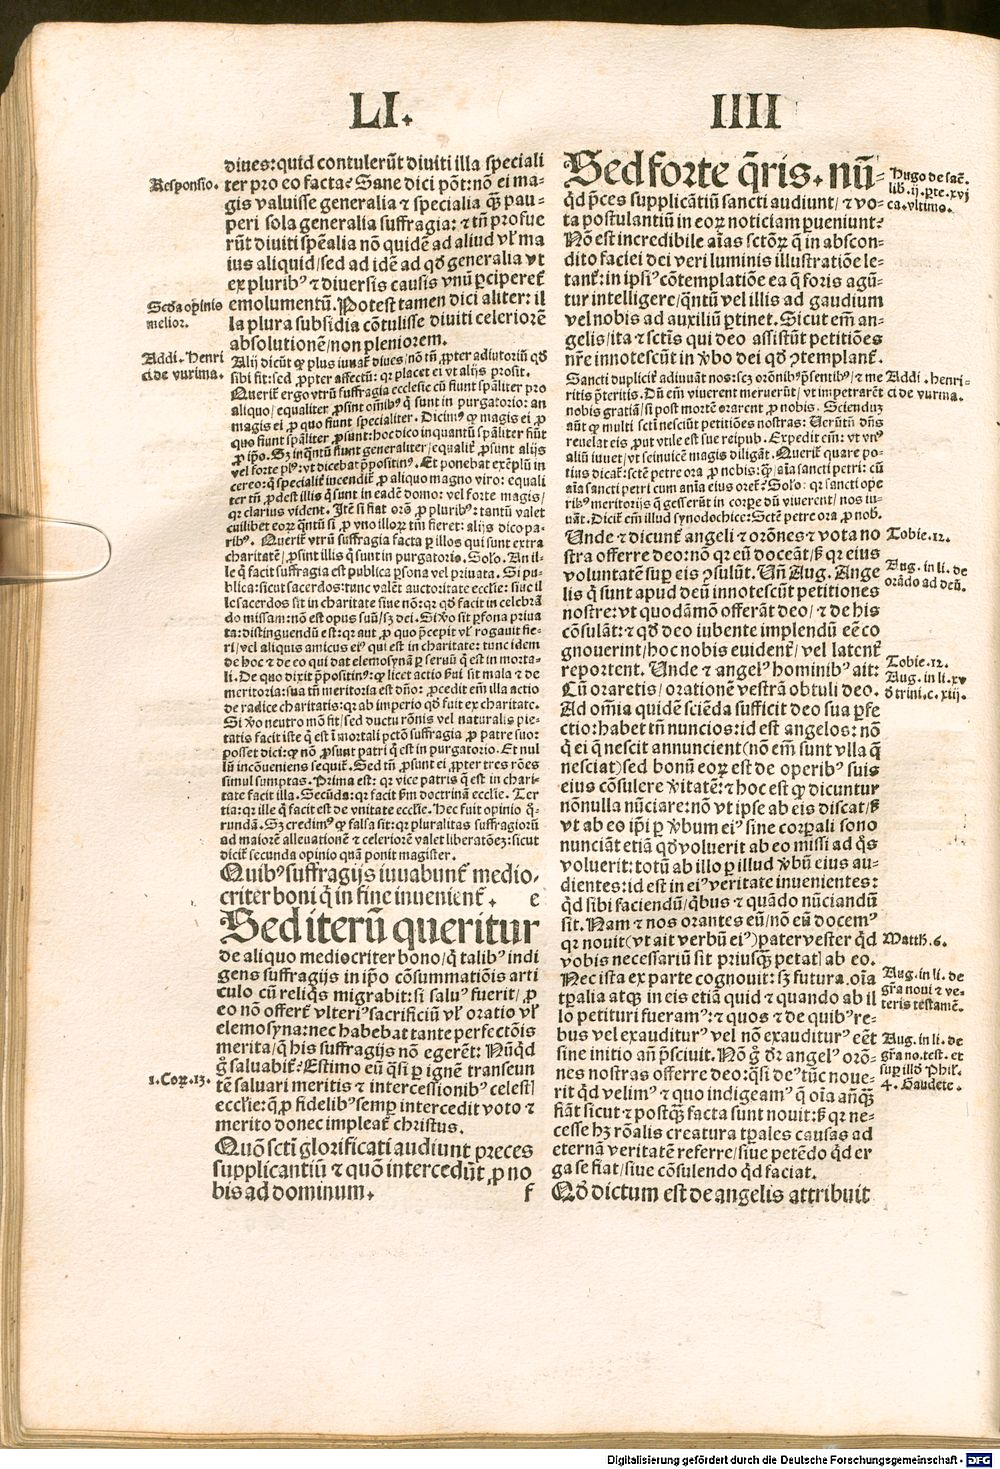 LI.
IIII
diues: quid contulerũt diuiti illa speciali
Responsio.
ter pro eo facta? Sane dici põt: nõ ei ma-
gis valuisse generalia ⁊ specialia q̃ȝ pau-
peri sola generalia suffragia: ⁊ tñ profue
rũt diuiti spẽalia nõ quidẽ ad aliud vl̕ ma
ius aliquid/ sed ad idẽ ad qđ generalia vt
ex pluribꝰ ⁊ diuersis causis vnũ ꝑciperet᷒
Scđa opinio
melior.
emolumentũ. Potest tamen dici aliter: il
la plura subsidia cõtulisse diuiti celeriorẽ
absolutionẽ/ non pleniorem.
Addi. Henri
ci de vurima.
Alij dicũt ꝙ plus iuuat᷒ diues/ nõ tñ ꝓpter adiutoriũ qđ
sibi fit: sed ꝓpter affectũ: qꝛ placet ei vt alijs prosit.
Querit᷒ ergo vtrũ suffragia ecclesie cũ fiunt spãliter pro
aliquo/ equaliter ꝓsint oĩnibꝰ q̃ sunt in purgatorio: an
magis ei ꝓ quo fiunt specialiter. Dicimꝰ ꝙ magis ei ꝓ
quo fiunt spãliter ꝓsunt: hoc dico inquantũ spãliter fiũt
ꝓ ip̃o. Sȝ inq̃ntũ fiunt generaliter/ equalit᷒ ꝓsunt alijs
vel forte plꝰ: vt dicebat p̃positinꝰ. Et ponebat exẽplũ in
cereo: q̃ specialit᷒ incendit᷒ ꝓ aliquo magno viro: equali
ter tñ ꝓdest illis q̃ sunt in eadẽ domo: vel forte magis/
qꝛ clarius vident. Itẽ si fiat orõ ꝓ pluribꝰ: tantũ valet
cuilibet eoꝝ q̃ntũ si ꝓ vno illoꝝ tm̃ fieret: alijs dico pa-
ribꝰ. Querit᷒ vtrũ suffragia facta ꝑ illos qui sunt extra
charitatẽ/ ꝓsint illis q̃ sunt in purgatorio. Solo. An il-
le q̃ facit suffragia est publica ꝑsona vel priuata. Si pu-
blica: sicut sacerdos: tunc valẽt auctoritate eccl̕ie: siue il
le sacerdos sit in charitate siue nõ: qꝛ qđ facit in celebrã
do missam: nõ est opus suũ/ sȝ dei. Si v̕o sit ꝑsona priua
ta: distinguendũ est: qꝛ aut ꝓ quo p̃cepit vl̕ rogauit fie-
ri/ vel aliquis amicus eiꝰ qui est in charitate: tunc idem
de hoc ⁊ de eo qui dat elemosynã ꝑ seruũ q̃ est in morta-
li. De quo dixit p̃positinꝰ: ꝙ licet actio s̕ui sit mala ⁊ de
meritoria: sua tñ meritoria est dño: ꝓcedit em̃ illa actio
de radice charitatis: qꝛ ab imperio qđ fuit ex charitate.
Si v̕o neutro mõ fit/ sed ductu rõnis vel naturalis pie-
tatis facit iste q̃ est ĩ mortali pctõ suffragia ꝓ patre suo:
posset dici: ꝙ nõ ꝓsunt patri q̃ est in purgatorio. Et nul
lũ incõueniens sequit᷒. Sed tñ ꝓsunt ei ꝓpter tres rões
simul sumptas. Prima est: qꝛ vice patris q̃ est in chari-
tate facit illa. Secũda: qꝛ facit s̕m doctrinã eccl̕ie. Ter
tia: qꝛ ille q̃ facit est de vnitate eccl̕ie. Hec fuit opinio q̃-
rundã. Sȝ credimꝰ ꝙ falsa sit: qꝛ pluralitas suffragioꝝ
ad maiorẽ alleuationẽ ⁊ celeriorẽ valet liberatõeȝ: sicut
dicit᷒ secunda opinio quã ponit magister.
Quibꝰ suffragijs iuuabunt᷒ medio-
criter boni q̃ in fine inuenient᷒. e
Sed iterũ queritur
de aliquo mediocriter bono/ q̃ talibꝰ indi
gens suffragijs in ip̃o cõsummatiõis arti
culo cũ reliq̃s migrabit: si saluꝰ fuerit/ ꝓ
eo nõ offert᷒ vlteriꝰ sacrificiũ vl̕ oratio vl̕
elemosyna: nec habebat tante perfectõis
merita/ q̃ his suffragijs nõ egerẽt: Nũq̃d
g̊ saluabit᷒? Estimo eũ q̃si ꝑ ignẽ transeun
1. Coꝝ. 13.
tẽ saluari meritis ⁊ intercessionibꝰ celestȷ
eccl̕ie: q̃ ꝓ fidelibꝰ semꝑ intercedit voto ⁊
merito donec impleat᷒ christus.
Quõ sctĩ glorificati audiunt preces
supplicantiũ ⁊ quõ intercedũt ꝓ no
bis ad dominum. f
Sed forte q̃ris. nũ-
Hugo de sac̃.
lib. ij. ꝑte. xvj
ca. vltimo.
q̃d p̃ces supplicãtiũ sancti audiunt/ ⁊ vo-
ta postulantiũ in eoꝝ noticiam ꝑueniunt?
Nõ est incredibile aĩas sctõꝝ q̃ in abscon-
dito faciei dei veri luminis illustratiõe le-
tant᷒: in ipsiꝰ cõtemplatiõe ea q̃ foris agũ-
tur intelligere/ q̃ntũ vel illis ad gaudium
vel nobis ad auxiliũ ꝑtinet. Sicut em̃ an-
gelis/ ita ⁊ sctĩs qui deo assistũt petitiões
nr̃e innotescũt in v̕bo dei qđ ꝯtemplant᷒.
Sancti duplicit᷒ adiuuãt nos: scȝ orõnibꝰ p̃sentibꝰ/ ⁊ me
Addi. henri-
ci de vurima.
ritis p̃teritis. Dũ em̃ viuerent meruerũt/ vt impetrarẽt
nobis gratiã/ si post mortẽ orarent ꝓ nobis. Sciendũ
aũt ꝙ multi sctĩ nesciũt petitiões nostras: Uerũtñ dñs
reuelat eis ꝓut vtile est sue reipub. Expedit em̃: vt vnꝰ
aliũ iuuet/ vt seinuicẽ magis diligãt. Querit᷒ quare po-
tius dicat᷒: sctẽ petre ora ꝓ nobis: q̃ȝ/ aĩa sancti petri: cũ
aĩa sancti petri cum anĩa eius oret? Solo: qꝛ sancti ope
ribꝰ meritorijs q̃ gesserũt in corꝑe dũ viuerent/ nos iu-
uãt. Dicit᷒ em̃ illud synodochice: Sctẽ petre ora ꝓ nob̕.
Unde ⁊ dicunt᷒ angeli ⁊ orõnes ⁊ vota no
Tobie. 12.
stra offerre deo: nõ qꝛ eũ doceãt/ sȝ qꝛ eius
Aug. in li. de
orãdo ad deũ.
voluntatẽ suꝑ eis ꝯsulũt. Uñ Aug. Ange
lis q̃ sunt apud deũ innotescũt petitiones
nostre: vt quodãmõ offerãt deo/ ⁊ de his
cõsulãt: ⁊ qđ deo iubente implendũ eẽ co
gnouerint/ hoc nobis euident᷒/ vel latent᷒
reportent. Unde ⁊ angelꝰ hominibꝰ ait:
Tobie. 12.
Aug. in li. xv
đ trini. c. xiij.
Cũ oraretis/ orationẽ vestrã obtuli deo.
Ad om̃ia quidẽ sciẽda sufficit deo sua ꝑfe
ctio: habet tñ nuncios: id est angelos: nõ
q̃ ei q̃ nescit annuncient (nõ em̃ sunt vlla q̃
nesciat) sed bonũ eoꝝ est de operibꝰ suis
eius cõsulere v̕itatẽ: ⁊ hoc est ꝙ dicuntur
nõnulla nũciare: nõ vt ipse ab eis discat/ sȝ
vt ab eo ip̃i ꝑ v̕bum eiꝰ sine corꝑali sono
nunciãt etiã qđ voluerit ab eo missi ad q̃s
voluerit: totũ ab illo ꝑ illud v̕bũ eius au-
dientes: id est in eiꝰ veritate inuenientes:
q̃d sibi faciendũ/ q̃bus ⁊ quãdo nũciandũ
sit. Nam ⁊ nos orantes eũ/ nõ eũ docemꝰ
qꝛ nouit (vt ait verbũ eiꝰ) pater vester q̃d
Matth. 6.
vobis necessariũ sit priusq̃ȝ petatȷ ab eo.
Nec ista ex parte cognouit: sȝ futura oĩa
Aug. in li. de
gr̃a noui ⁊ ve-
teris testamẽ.
tꝑalia atqꝫ in eis etiã quid ⁊ quando ab il
lo petituri fueramꝰ: ⁊ quos ⁊ de quibꝰ re-
bus vel exauditurꝰ vel nõ exauditurꝰ eẽt
Aug. in li. de
gr̃a no. test. et
suꝑ illđ Phil̕.
4. Gaudete.
sine initio añ p̃sciuit. Nõ g̊ đr angelꝰ orõ-
nes nostras offerre deo: q̃si deꝰ tũc noue-
rit q̃d velimꝰ ⁊ quo indigeamꝰ q̃ oĩa añq̃ȝ
fiãt sicut ⁊ postq̃ȝ facta sunt nouit: sȝ qꝛ ne-
cesse hȝ rõalis creatura tꝑales causas ad
eternã veritatẽ referre/ siue petẽdo q̃d er
ga se fiat/ siue cõsulendo q̃d faciat.
Qđ dictum est de angelis attribuit
Digitalisierung gefördert durch die Deutsche Forschungsgemeinschaft - DFG